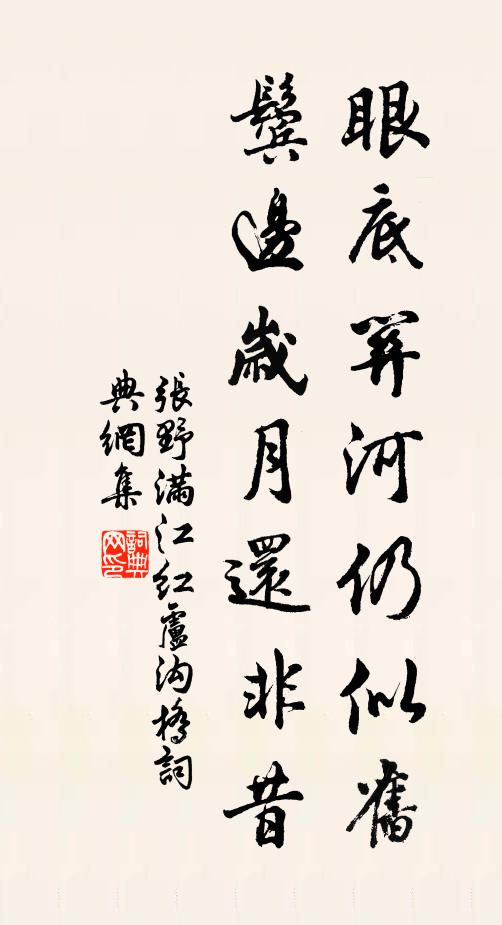 眼底關河仍似舊
鬢邊歲月還非昔
張野滿江紅盧溝橋詞
典網集
詞典
网印